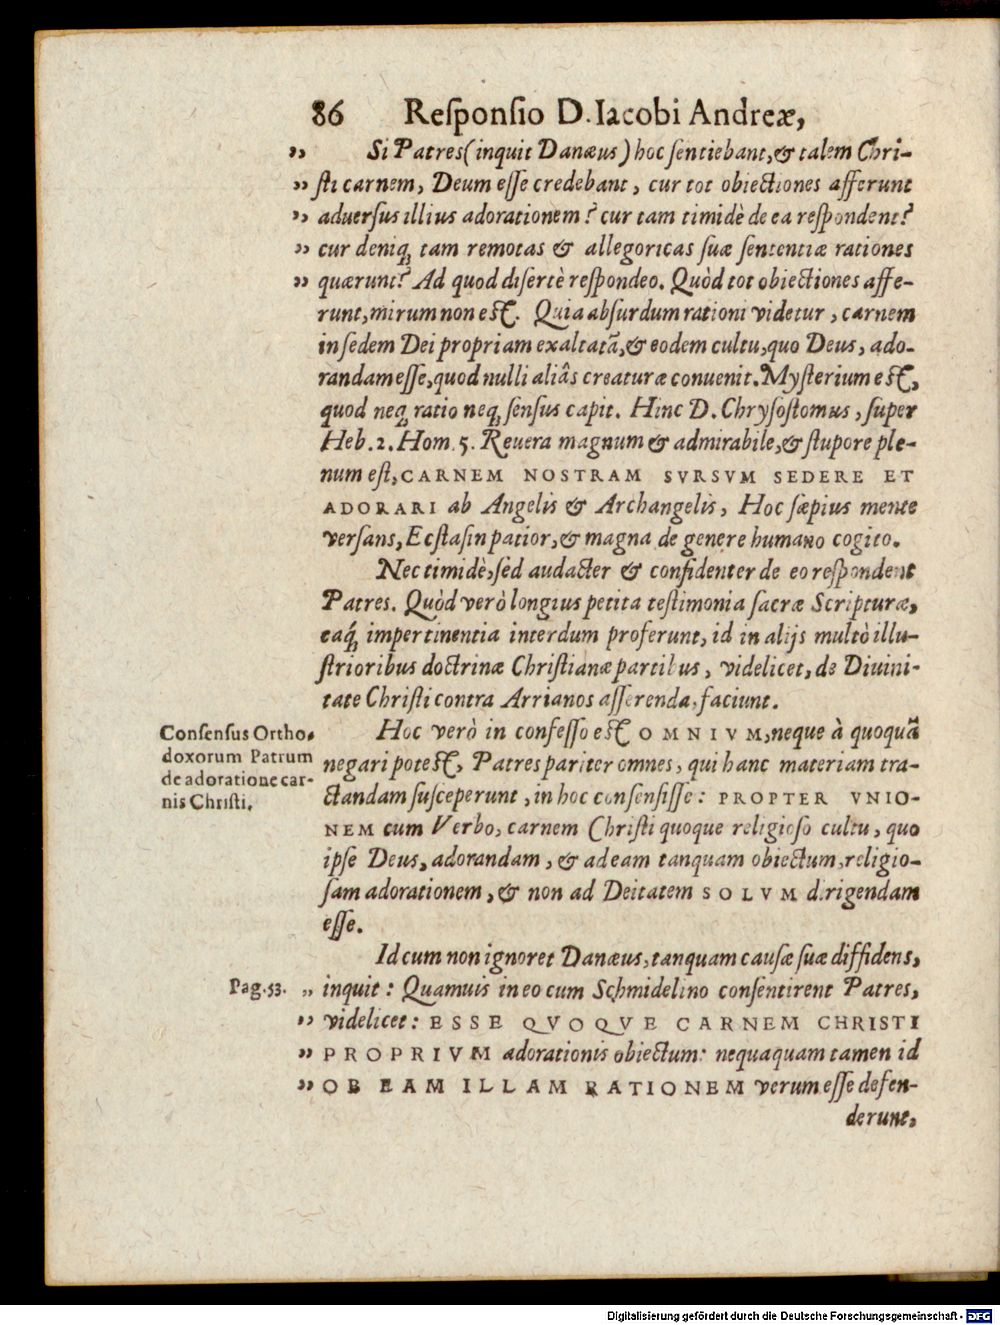 86 Reſponſio D. Iacobi Andreæ,
„ Si Patres (inquit Danæus) hoc ſentiebant, & talem Chri-
„ ſti carnem, Deum eſſe credebant, cur tot obiectiones afferunt
„ aduerſus illius adorationem? cur tam timidè de ea reſpondent?
„ cur deniq; tam remotas & allegoricas ſuæ ſententiæ rationes
„ quærunt? Ad quod diſertè reſpondeo. Quòd tot obiectiones affe-
runt, mirum non eſt. Quia abſurdum rationi videtur, carnem
in ſedem Dei propriam exaltatã, & eodem cultu, quo Deus, ado-
randam eſſe, quod nulli aliâs creaturæ conuenit. Myſterium eſt,
quod neq; ratio neq; ſenſus capit. Hinc D. Chryſoſtomus, ſuper
Heb. 2. Hom. 5. Reuera magnum & admirabile, & ſtupore ple-
num eſt, CARNEM NOSTRAM SVRSVM SEDERE ET
ADORARI ab Angelis & Archangelis, Hoc ſæpius mente
verſans, Ecſtaſin patior, & magna de genere humano cogito.
Nec timidè, ſed audacter & confidenter de eo reſpondent
Patres. Quòd verò longius petita teſtimonia ſacræ Scripturæ,
eaq́; impertinentia interdum proferunt, id in alijs multò illu-
ſtrioribus doctrinæ Chriſtianæ partibus, videlicet, de Diuini-
tate Chriſti contra Arrianos aſſerenda, faciunt.
Conſenſus Ortho-
doxorum Patrum
de adoratione car-
nis Chriſti.
Hoc verò in confeſſo eſt OMNIVM, neque à quoquã
negari poteſt, Patres pariter omnes, qui hanc materiam tra-
ctandam ſuſceperunt, in hoc conſenſiſſe: PROPTER VNIO-
NEM cum Verbo, carnem Chriſti quoque religioſo cultu, quo
ipſe Deus, adorandam, & ad eam tanquam obiectum, religio-
ſam adorationem, & non ad Deitatem SOLVM dirigendam
eſſe.
Id cum non ignoret Danæus, tanquam cauſæ ſuæ diffidens,
Pag. 53. „ inquit: Quamuis in eo cum Schmidelino conſentirent Patres,
„ videlicet: ESSE QVOQVE CARNEM CHRISTI
„ PROPRIVM adorationis obiectum: nequaquam tamen id
„ OB EAM ILLAM RATIONEM verum eſſe defen-
derunt,
Digitalisierung gefördert durch die Deutsche Forschungsgemeinschaft - DFG